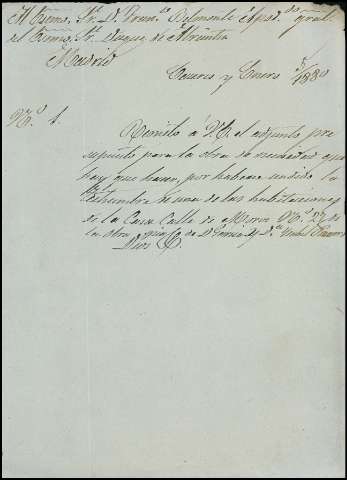 Al Excmo. Sr. D. Fran.co Belmonte Apod.do gral.
del Excmo. Sr. Duque de Abrantes
Madrid
Caceres y Enero 5/1880
N.º 1.
Remito á V.E. el adjunto pre
supuesto para la obra de necesidad que
hay que hacer, por haberse undido la
techumbre de una de las habitaciones
de la Casa Calle de Moros N.º 27 de
la otra de D. y D.ª Isabel
Dios &